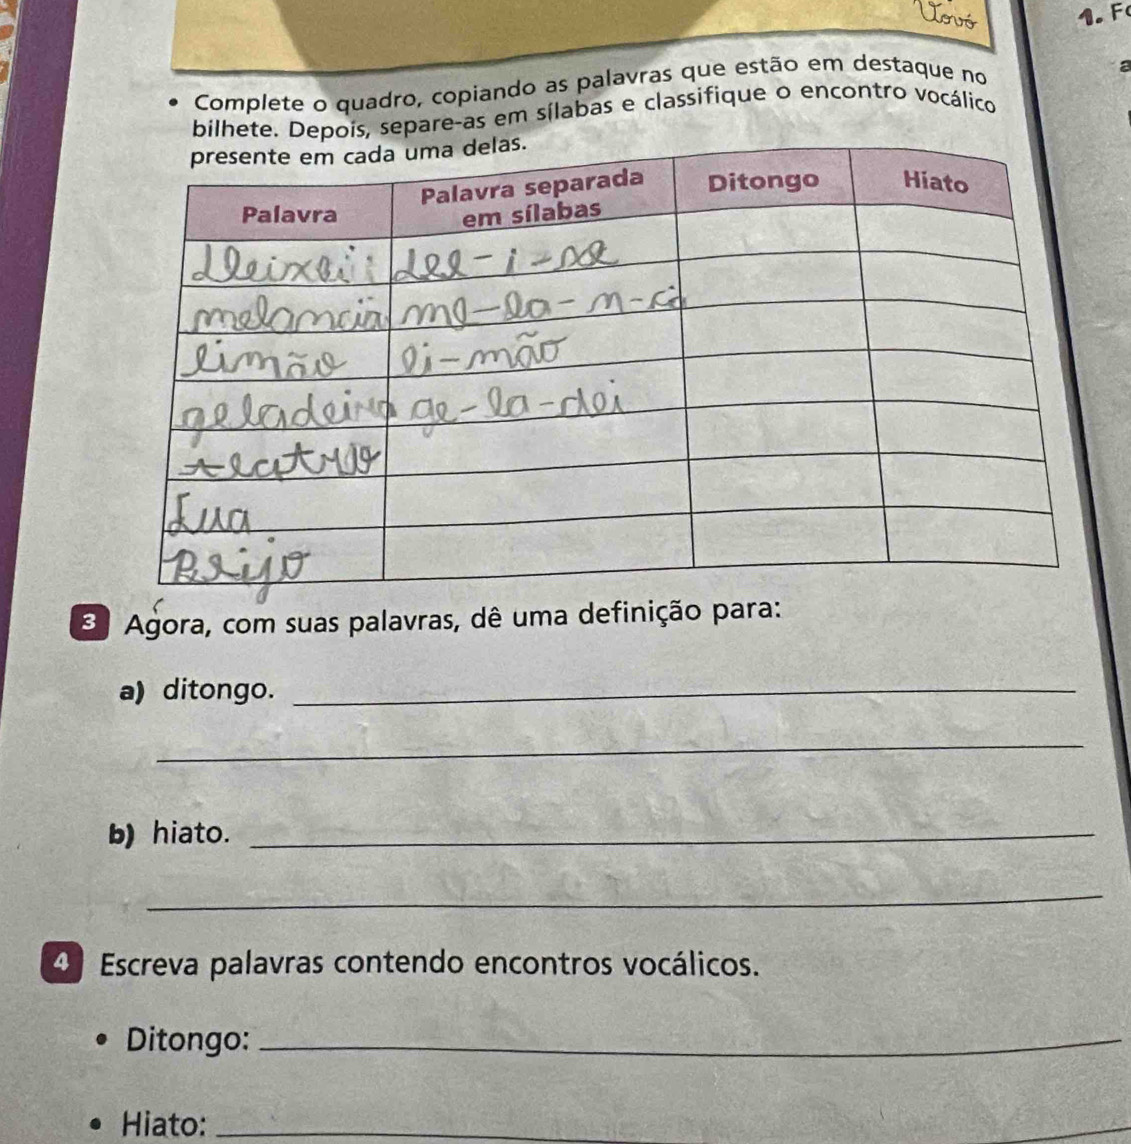 Vovó
1. F
a
• Complete o quadro, copiando as palavras que estão em destaque no
bilhete. Depois, separe-as em sílabas e classifique o encontro vocálico
presente em cada uma delas.
Palavra Palavra separada em sílabas Ditongo Hiato
deixei
melancia ma-la-n-ci
limão li-mão
geladeira ge-la-dei
teatro
Lua
Beijo
3 Agora, com suas palavras, dê uma definição para:
a) ditongo.
b) hiato.
4 Escreva palavras contendo encontros vocálicos.
• Ditongo:
• Hiato: